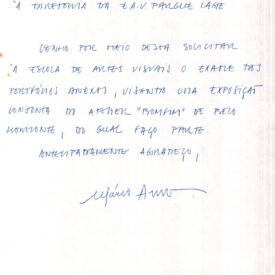 À DIRETORIA DA E.A.V PARQUE LAGE
VENHO POR MEIO DESTA SOLICITAR
À ESCOLA DE ARTES VISUAIS O EXAME DOS
PORTFÓLIOS ANEXOS, VISANDO UMA EXPOSIÇÃO
CONJUNTA DO ATELIER "BOMFIM" DE BELO
HORIZONTE, DO QUAL FAÇO PARTE
ANTECIPADAMENTE AGRADEÇO,
Mário